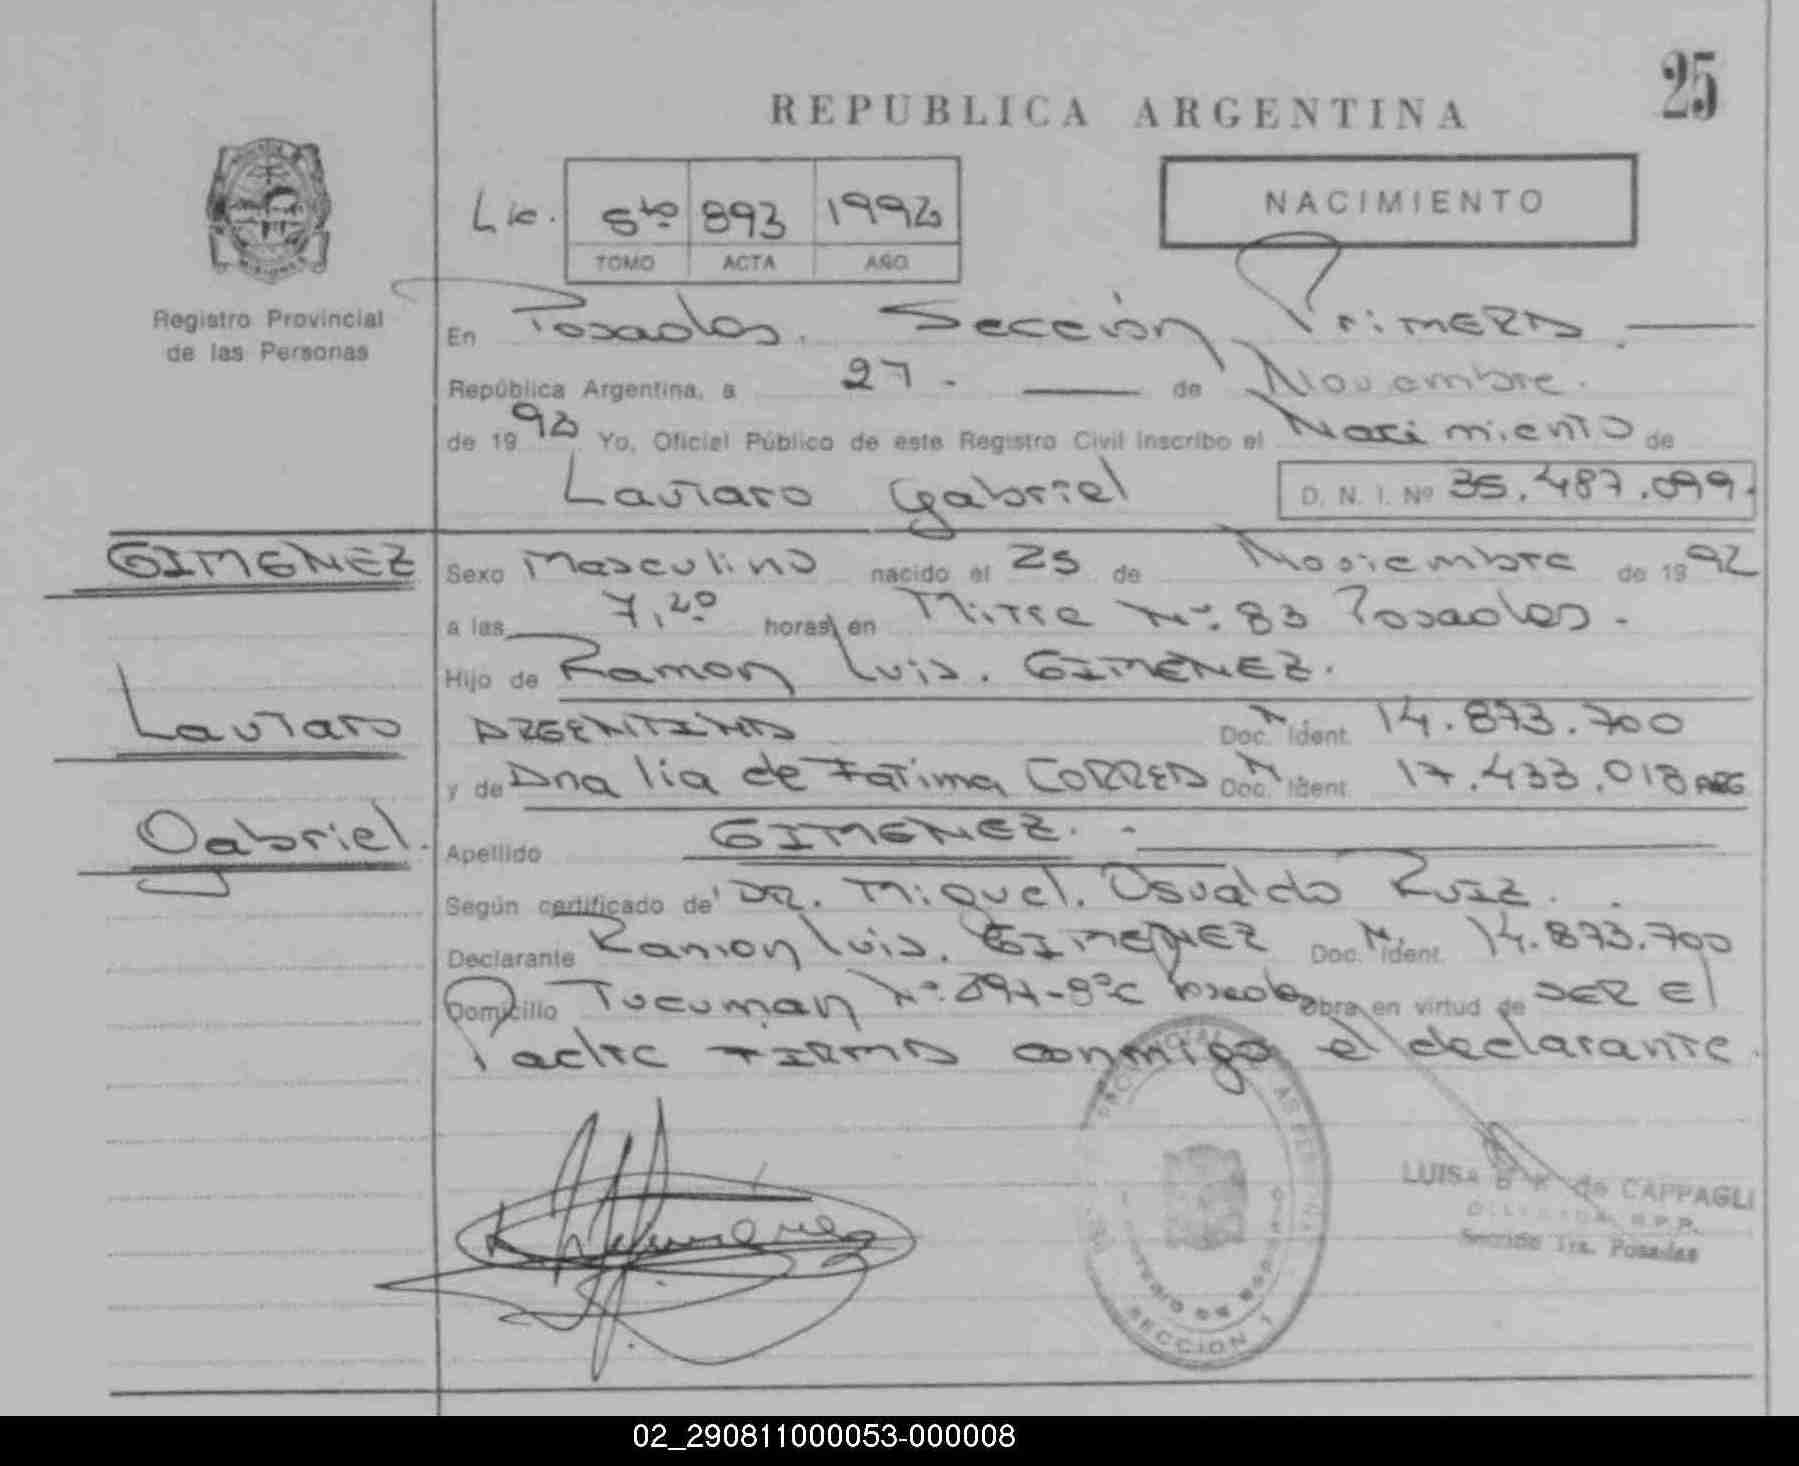 25
REPUBLICA ARGENTINA
NACIMIENTO
Lic. 5to 893 1992
TOMO ACTA AÑO
Registro Provincial
de las Personas
En Posadas. Sección Primera.
República Argentina, a 27. de Noviembre.
de 1992 Yo, Oficial Público de este Registro Civil inscribo el Nacimiento de
Lautaro Gabriel D. N. I. Nº 35.487.099.
GIMENEZ
Sexo Masculino nacido el 25 de Noviembre de 1992
a las 7,20 horas en Mitre Nº. 83 Posadas.
Hijo de Ramon Luis. GIMENEZ.
Lautaro
ARGENTINA Doc. N Ident. 14.873.700
y de Analia de Fatima CORREA Doc. N Ident. 17.433.018 ARG
Gabriel.
Apellido GIMENEZ.
Según certificado de DR. Miguel. Osvaldo Ruiz.
Declarante Ramon Luis. GIMENEZ Doc. N. Ident. 14.873.700
Domicilio Tucuman Nº Posadas Obra en virtud de SER El
Padre FIRMA conmigo el declarante.
LUISA de CAPPAGLI
R.P.P.
Sección 1ra. Posadas
SECCION 1
02_290811000053-000008